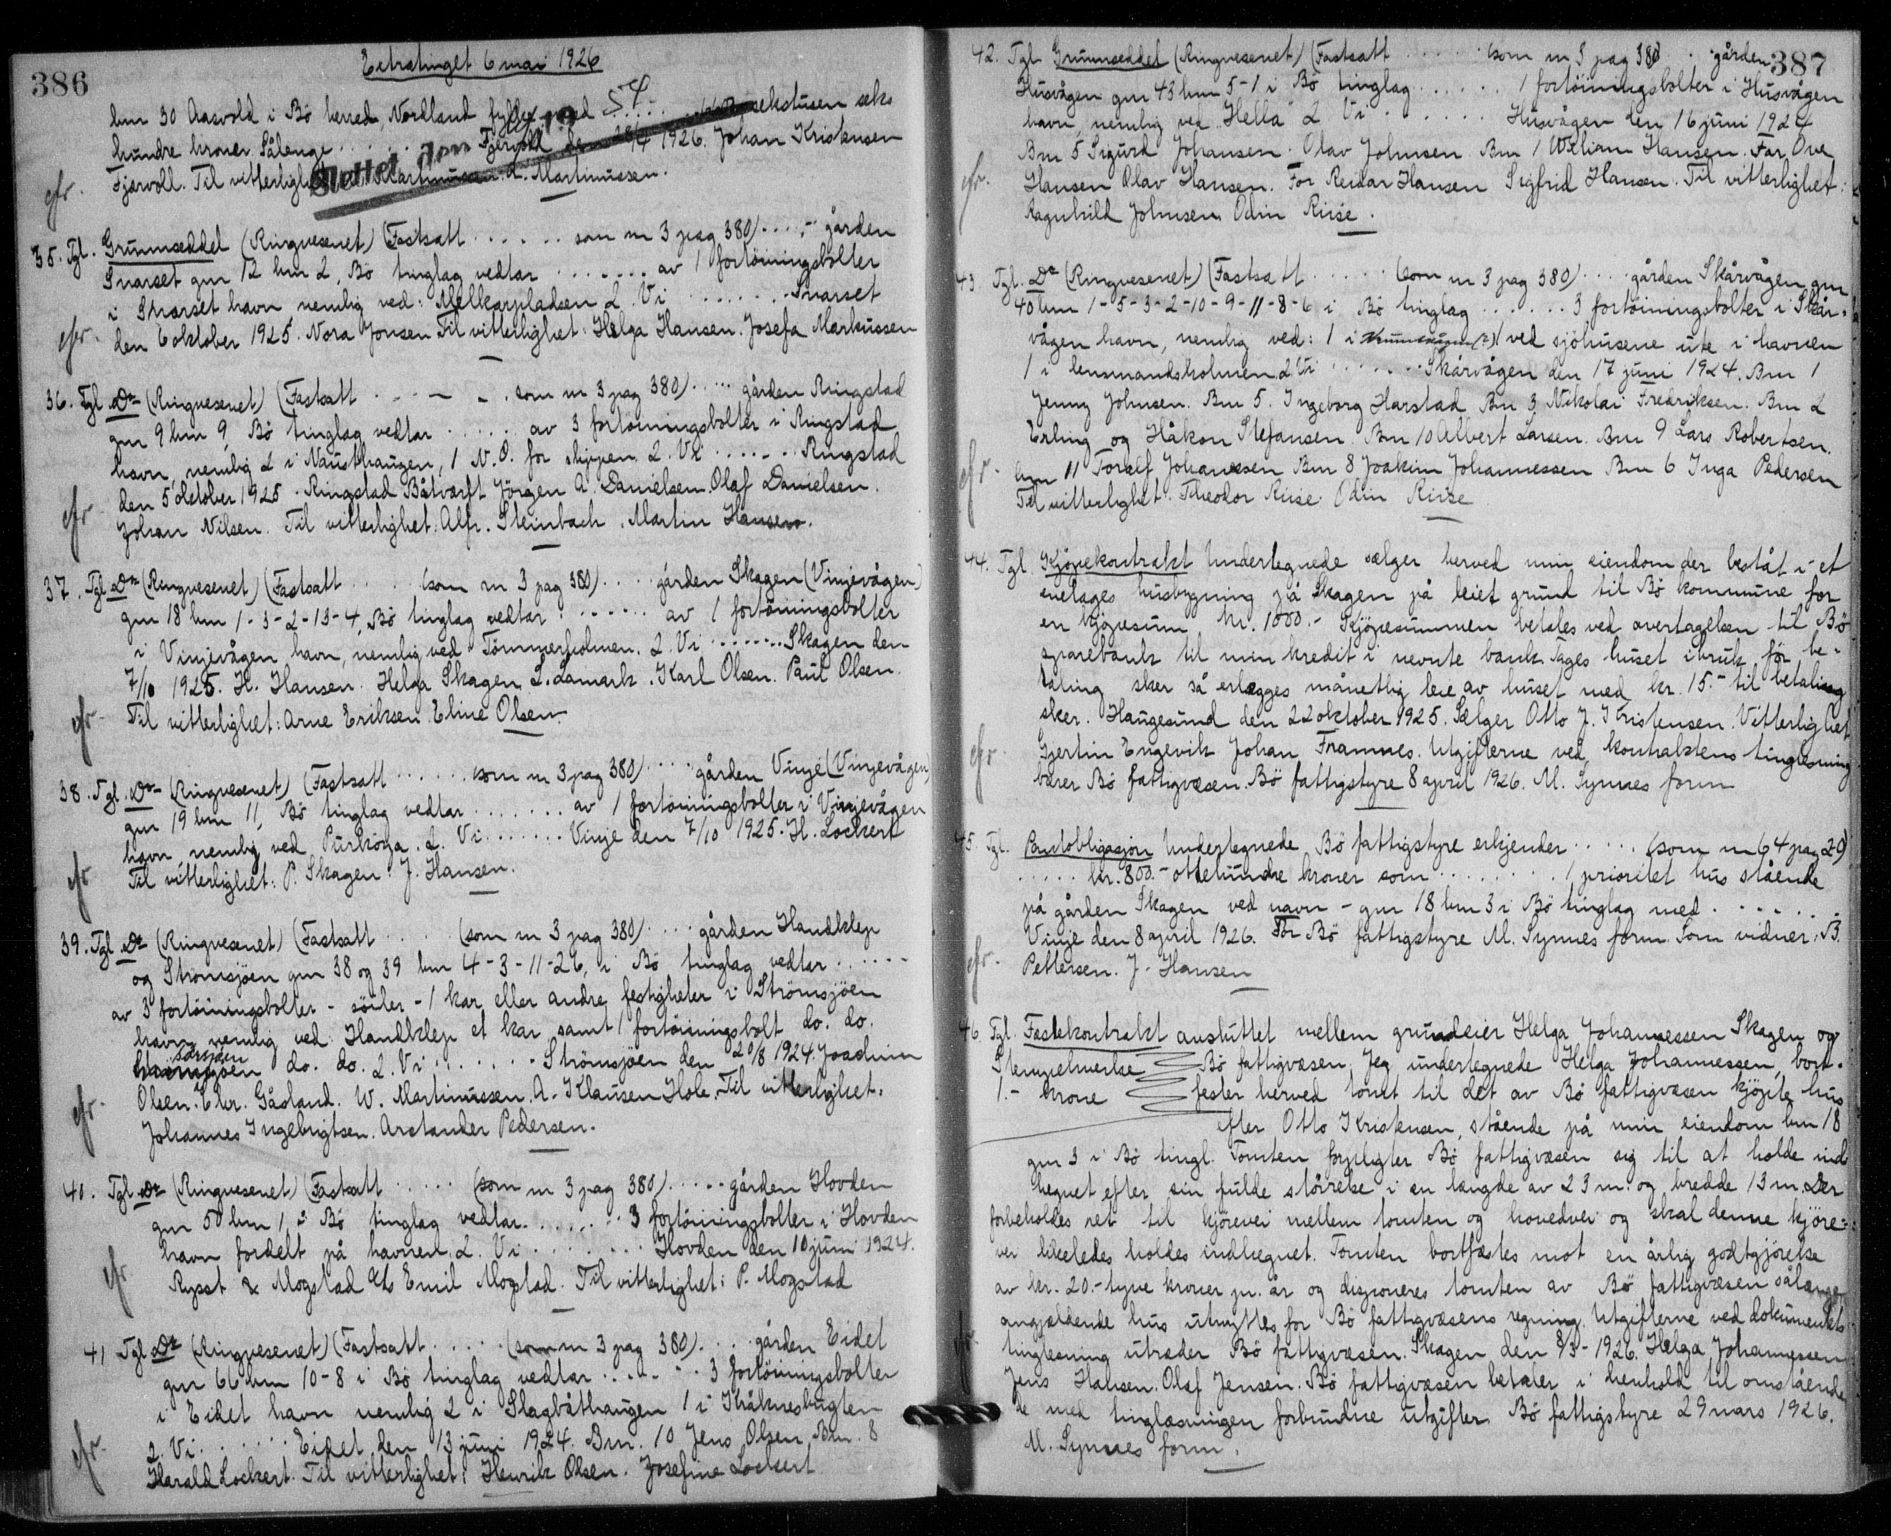 386
Extratinget 6 mai 1926
bnr 30 Aasvold i Bø herred, Nordland fylke med sekstusen seks
hundre kroner. Sålenge . . . . . . 1926. Johan Kristensen
Fjærvoll. Til vitterlighet: Martinussen. L. Martinussen.
Slettet den
cfr.
35. Tgl. Grunnseddel (Ringvesenet) (Fastsatt . . . . . . som nr 3 pag 380) . . . . - gården
Snarset gnr 12 bnr 2, Bø tinglag vedtar . . . . . . . av 1 fortöiningsbolter
i Snarset havn nemlig ved: Mellkarpladsen 2. Vi . . . . . . . . Snarset
cfr. den 6 oktober 1925. Nora Jonsen Til vitterlighet: Helga Hansen. Josefa Markussen
36. Tgl. Do (Ringvesenet) (Fastsatt . . . - - . som nr 3 pag 380) . . . . . gården Ringstad
gnr 9 bnr 9, Bø tinglag vedtar . . . . . . av 3 fortöiningsbolter i Ringstad
havn, nemlig 2 i Nausthaugen, 1 N.O. for skippen. 2. Vi . . . . . . Ringstad
cfr. den 5 October 1925. Ringstad Båtværft Jörgen A. Danielsen. Olaf Danielsen.
Johan Nilsen. Til vitterlighet: Alfr. Steinbach. Martin Hansen.
37. Tgl. Do (Ringvesenet) (Fastsatt . . . . . . (som nr 3 pag 380) . . . . . gården Skagen (Vinjevågen)
gnr 18 bnr 1-3-2-13-4, Bø tinglag vedtar . . . . . . . av 1 fortöiningsbolter
i Vinjevågen havn, nemlig ved: Tömmerholmen. 2. Vi . . . . . . . Skagen den
7/10 1925. H. Hansen. Helga Skagen. L. Lamark. Karl Olsen. Paul Olsen.
cfr. Til vitterlighet: Arne Eriksen. Eline Olsen.
38. Tgl. Do (Ringvesenet) (Fastsatt . . . . . . (som nr 3 pag 380) . . . . . gården Vinje (Vinjevågen)
gnr 19 bnr 11, Bø tinglag vedtar . . . . . . . av 1 fortöiningsbolter i Vinjevågen
havn, nemlig ved Purköya. 2. Vi . . . . . . . Vinje den 7/10 1925. H. Lockert
cfr. Til vitterlighet: P. Skagen. J. Hansen.
39. Tgl. Do (Ringvesenet) (Fastsatt . . . . . (som nr 3 pag 380) . . . . . gården Handklep
og Strömsjöen gnr 38 og 39 bnr 4-3-11-26, i Bø tinglag vedtar . . . . . .
av 3 fortöiningsbolter - söiler - 1 kar eller andre festigheter i Strömsjöen
havn nemlig ved: Handklep et kar samt 1 fortöiningsbolt do. do.
do. do. 2. Vi . . . . . . Strömsjöen den 20/8 1924. Joachim
cfr. Olsen. Chr. Gåsland. W. Martinussen. A. Klausen Hole. Til vitterlighet:
Johannes Ingebrigtsen. Arstander Pedersen.
40. Tgl. Do (Ringvesenet) (Fastsatt . . . . . (som nr 3 pag 380) . . . . . gården Hovden
gnr 50 bnr 1, i Bø tinglag vedtar . . . . . . . 3 fortöiningsbolter i Hovden
cfr. havn fordelt på havnen. 2. Vi . . . . . . . . Hovden den 10 juni 1924.
Rysst & Mogstad Emil Mogstad. Til vitterlighet: P. Mogstad
41 Tgl. Do (Ringvesenet) (Fastsatt . . . . . (som nr 3 pag 380) . . . . gården Eidet
gnr 66 bnr 10-8 i Bø tinglag vedtar . . . . . . . 3 fortöiningsbolter
i Eidet havn nemlig 2 i Slagbåthaugen 1 i Kråknesbugten
cfr. 2. Vi . . . . . . . Eidet den 13 juni 1924. Bnr. 10 Jens Olsen Bnr. 8
Harald Lockert. Til vitterlighet: Henrik Olsen. Josefine Lockert
387
42. Tgl. Grunnseddel (Ringvesenet) (Fastsatt . . . . . . (som nr 3 pag 380) . . gården
Husvågen gnr 43 bnr 5-1 i Bø tinglag . . . . . . 1 fortöiningsbolter i Husvågen
havn, nemlig ved "Hella" 2. Vi . . . . . . . Husvågen den 16 juni 1924
Bnr 5 Sigurd Johansen. Olav Johnsen. Bnr 1 William Hansen. For Ove
cfr. Hansen Olav Hansen. For Reidar Hansen Sigfrid Hansen. Til vitterlighet:
Ragnhild Johnsen Odin Riise.
43. Tgl. Do (Ringvesenet) (Fastsatt . . . . . . (som nr 3 pag 380) . . . . . gården Skårvågen gnr
40 bnr 1-5-3-2-10-9-11-8-6 i Bø tinglag . . . . . . 3 fortöiningsbolter i Skår-
vågen havn, nemlig ved: 1 i (?) 1 ved sjöhusene ute i havnen
1 i lensmandsholmen. 2. Vi . . . . . . . Skårvågen den 17 juni 1924. Bnr 1
Jenny Johnsen. Bnr 5. Ingeborg Harstad Bnr 3 Nikolai Fredriksen. Bnr 2
Erling og Håkon Stefansen. Bnr 10 Albert Larsen. Bnr 9 Lars Robertsen.
cfr. bnr 11 Toralf Johansen Bnr 8 Joakim Johannessen Bnr 6 Inga Pedersen
Til vitterlighet. Theodor Riise Odin Riise
44. Tgl. Kjöpekontrakt Undertegnede sælger herved min eiendom der bestât i et
enetages husbygning på Skagen på leiet grund til Bø kommune for
en kjöpesum kr. 1000.- Kjöpesummen betales ved overtagelsen til Bø
sparebank til min kredit i nevnte bank. Tages huset i bruk för be-
taling sker så erlægges månetlig leie av huset med kr. 15.- til betaling
sker. Haugesund den 22 oktober 1925. Sælger Otto J. Kristensen. Vitterlighet
cfr. Gjertin Engevik Johan Framnes. Utgifterne ved kontraktens tinglesning
bærer Bø fattigvæsen. Bø fattigstyre 8 april 1926. M. Synnes form
45. Tgl. Pantobligasjon Undertegnede Bø fattigstyre erkjender . . . . . (som nr 64 pag 29)
. . . . . kr. 800.- ottehundre kroner som . . . . . . . . 1 prioritet hus stående
på gården Skagen ved navn - gnr 18 bnr 3 i Bø tinglag med . . . . . . .
Vinje den 8 april 1926. For Bø fattigstyre M. Synnes form Som vidner: B.
cfr. Pettersen. J. Hansen
46. Tgl. Festekontrakt avsluttet mellem grundeier Helga Johannessen Skagen og
Stempelmerke Bø fattigvæsen. Jeg undertegnede Helga Johannessen, bort-
1.- krone fester herved tomt til det av Bø fattigvæsen kjöpte hus
efter Otto Kristensen, stående på min eiendom bnr 18
gnr 3 i Bø tingl. Tomten forpligter Bø fattigvæsen sig til at holde ind
hegnet efter sin fulde störrelse i en længde av 23 m. og bredde 13 m. Der
forbeholdes ret til kjörevei mellem tomten og hovedvei og skal denne kjöre-
vei likeledes holdes indhegnet. Tomten bortfæstes mot en årlig godtgjörelse
av kr. 20.- tyve kroner pr. år og disponeres tomten av Bø fattigvæsen sålænge
angjældende hus utnyttes for Bø fattigvæsens regning. Utgifterne ved dokumentets
tinglesning utreder Bø fattigvæsen. Skagen den 8/3-1926. Helga Johannessen
Jens Hansen. Olaf Jensen. Bø fattigvæsen betaler i henhold til omstående
de med tinglæsningen forbundne utgifter. Bø fattigstyre 29 mars 1926.
M. Synnes form.